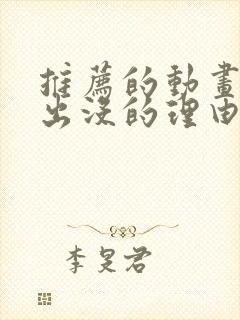 推薦的動畫
出沒的理由
李旻君